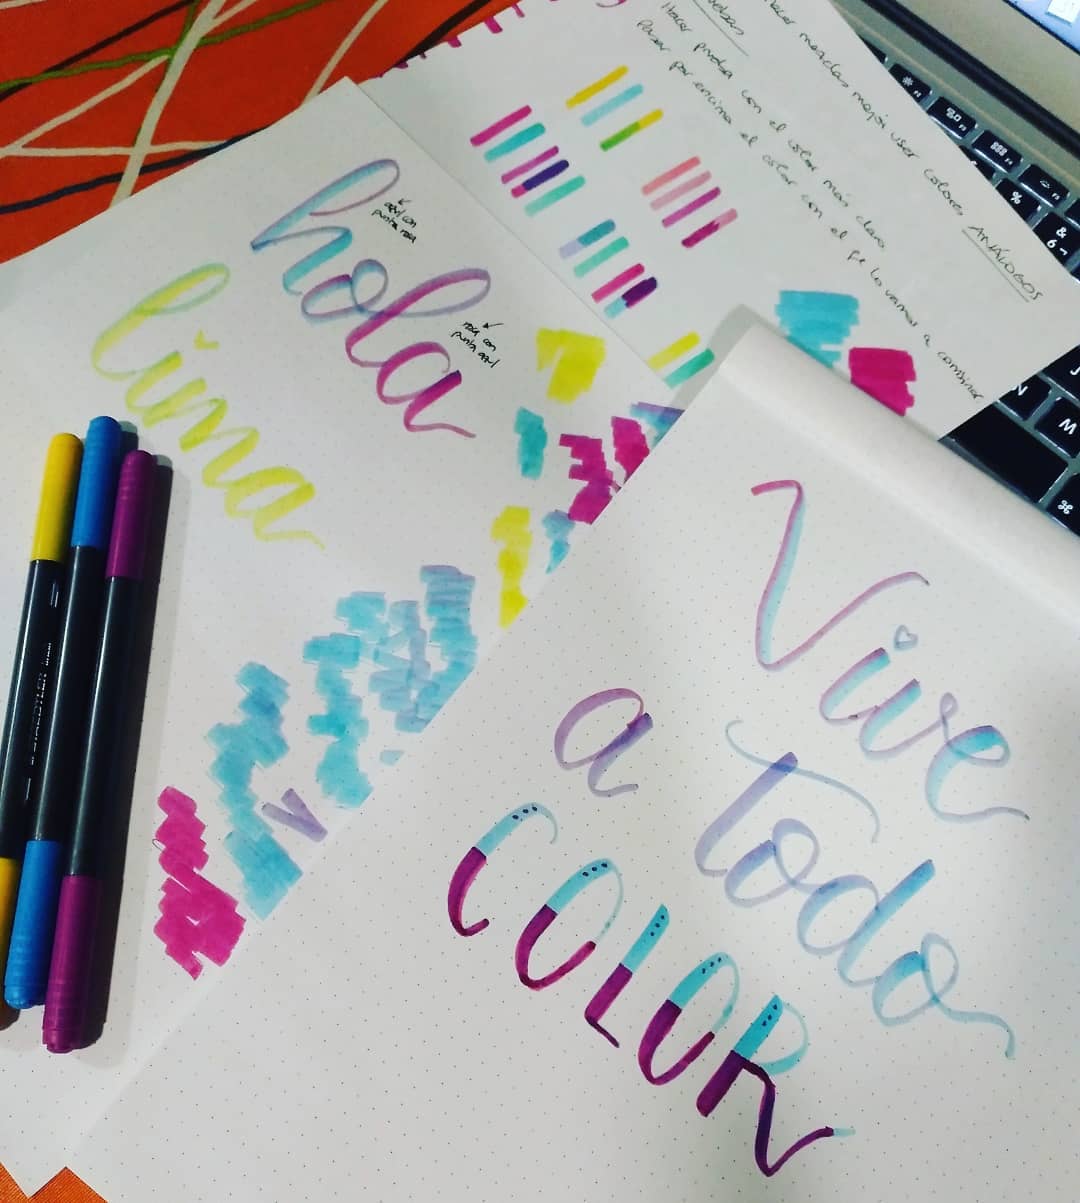 hacer mezclas mejor usar colores ANÁLOGOS
Hacer prueba con el color más claro
Pasar por encima el color con el que lo vamos a combinar
hola
azul con
punta rosa
rosa con
punta azul
lima
STAEDTLER
Vive
a Todo
COLOR